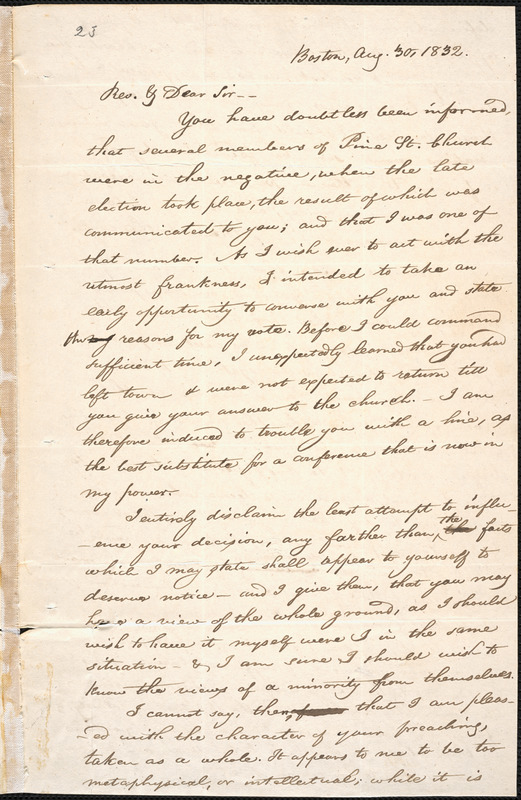 25
Boston, Aug. 30, 1832.
Rev. & Dear Sir--
You have doubtless been informed,
that several members of Pine St. Church
were in the negative, when the late
election took place, the result of which was
communicated to you; and that I was one of
that number. As I wish ever to act with the
utmost frankness, I intended to take an
early opportunity to converse with you and state
the reasons for my vote. Before I could command
sufficient time, I unexpectedly learned that you had
left town & were not expected to return till
you give your answer to the church. - I am
therefore induced to trouble you with a line, as
the best substitute for a conference that is now in
my power.
I entirely disclaim the least attempt to influ-
-ence your decision, any farther than the facts
which I may state shall appear to yourself to
deserve notice - and I give them, that you may
have a view of the whole ground, as I should
wish to have it myself were I in the same
situation - & I am sure I should wish to
know the views of a minority from themselves.
I cannot say, then, that I am pleas-
-ed with the character of your preaching,
taken as a whole. It appears to me to be too
metaphysical, or intellectual; while it is